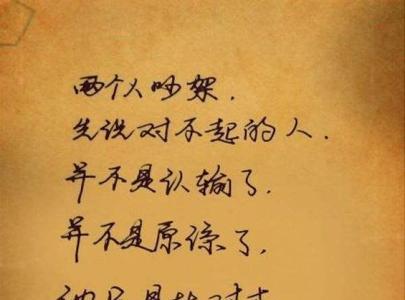 两个人吵架.
先说对不起的人.
并不是认输了.
并不是原谅了.